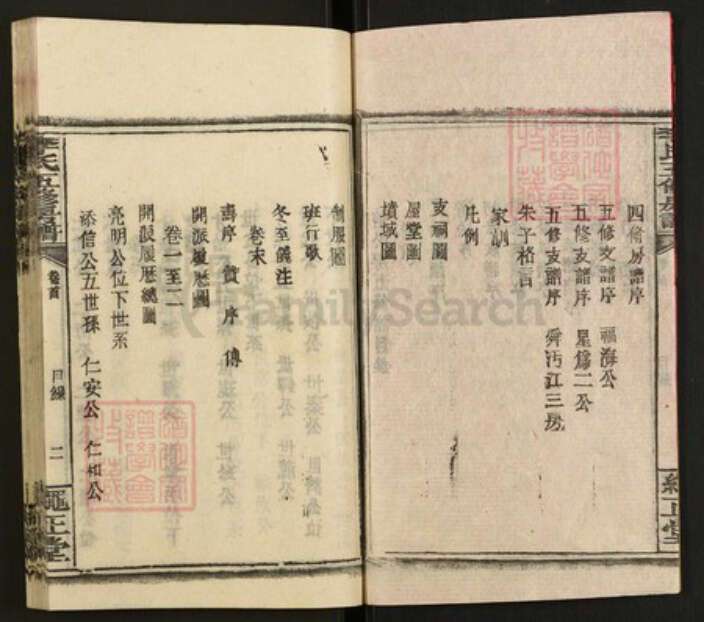 四脩房譜序
五修支譜序 福海公
五修支譜序 星為二公
五修支譜序 舜沔江三房
朱子格言
家訓
凡例
支祠圖
屋堂圖
墳域圖
李氏五修房譜
卷首
目錄
二
制服圖
班行歌
冬至儀注
卷末
壽序 賛 序 傳
開派履歷圖
卷一至二
開派履歷總圖
亮明公位下世系
添信公五世孫 仁安公 仁和公
FamilySearch